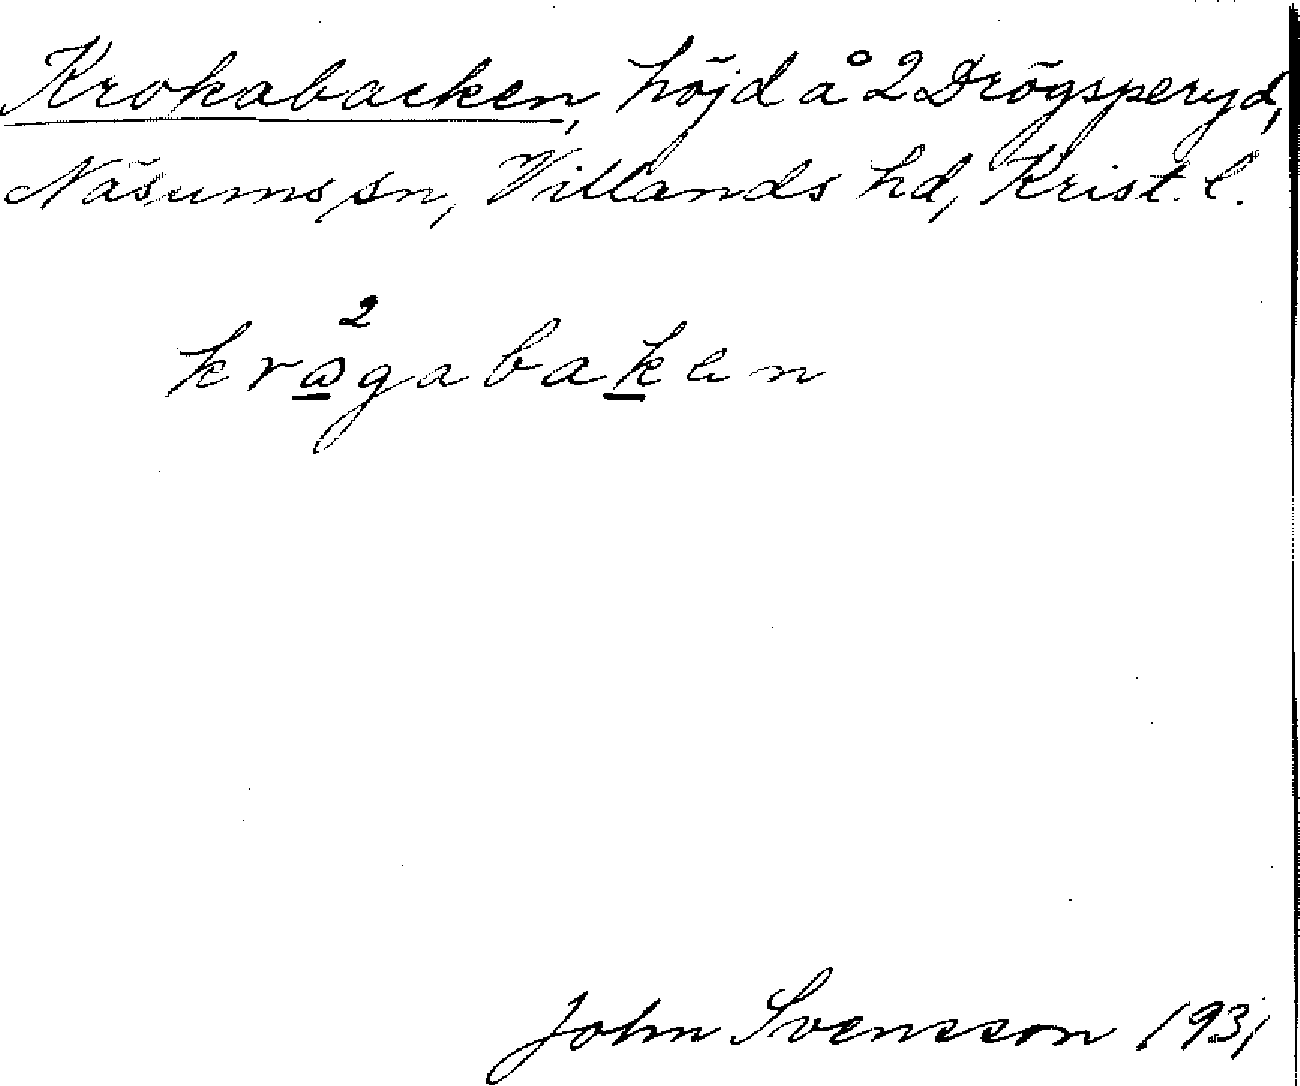 Krokabacken, höjd å 2 Drögsperyd,
Näsums sn, Villands hd, Krist. l.
2
krågabaken
John Svensson 1931